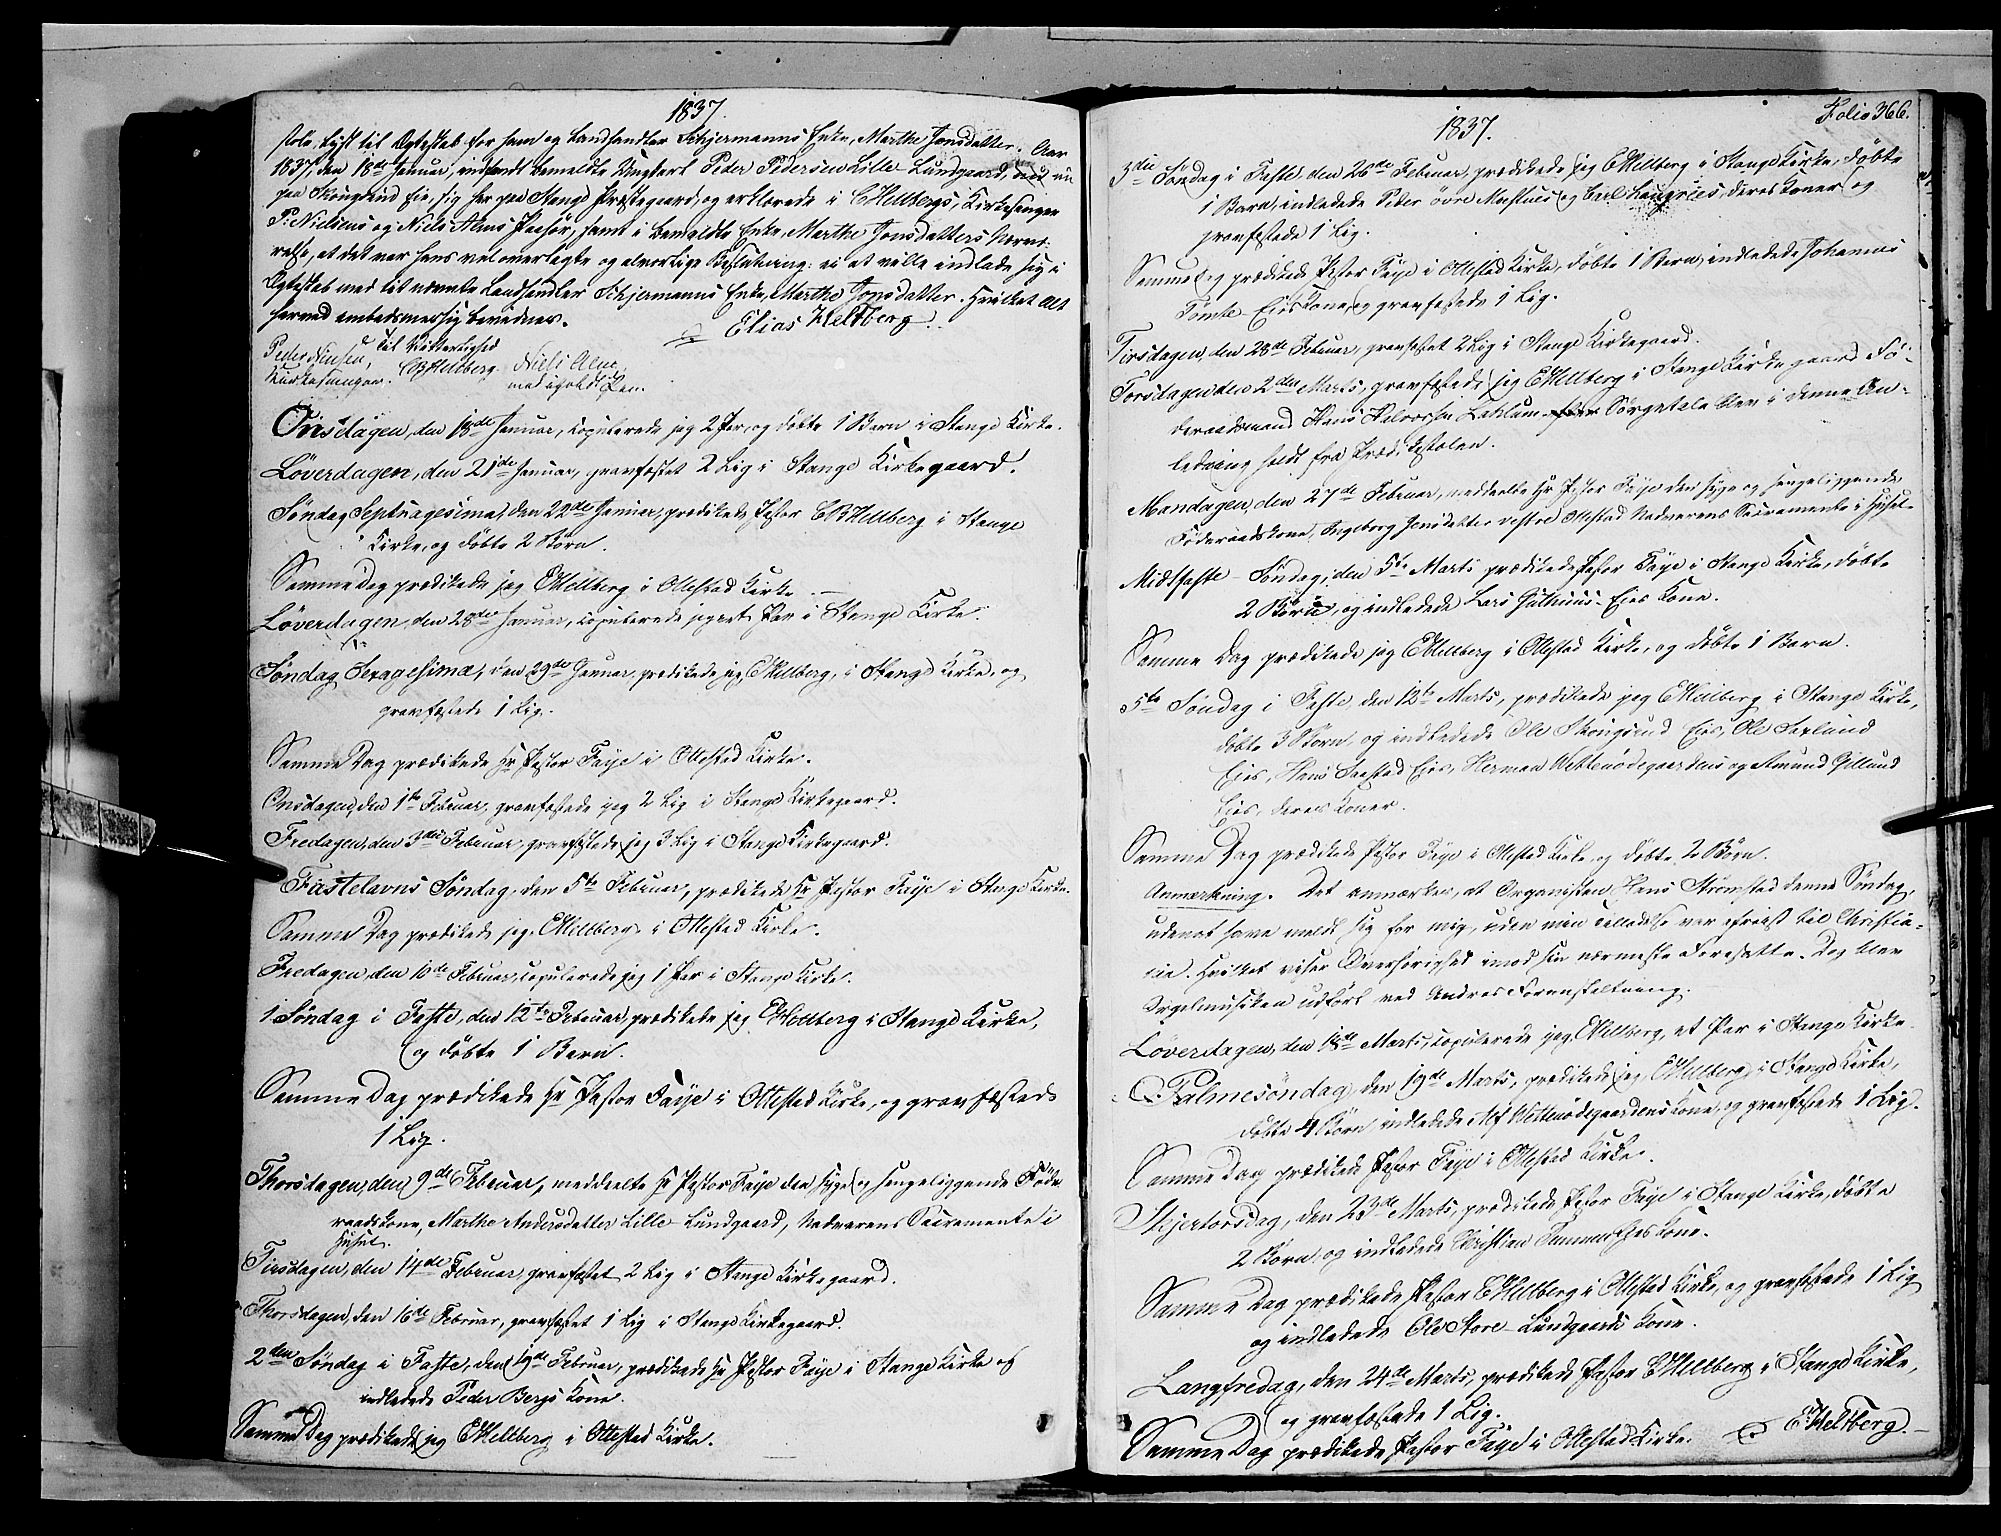 1837.
stole, lyst til Egteskab for ham og Landhandler Schjermanns Enke, Marthe Jonsdatter. Aar
1837, den 18de Januar, indfandt bemeldte Ungkarl Peder Pedersen Lille-Lundgaard, nu
paa Skougsrud Eie, sig her paa Stange Præstegaard, og erklærede i CHeltbergs, Kirkesanger
P. Nielsens og Niels Alms Paahør, samt i bemeldte Enke, Marthe Jonsdatters Nærvæ-
relse, at det var hans vel overlagte og alvorlige Beslutning: ei at ville indlade sig i
Egteskab med bemeldte Landhandler Schjermanns Enke, Marthe Jonsdatter. Hvilket Alt
herved embedsmæssig bevidnes.
Elias Heltberg.
Til Vitterlighed
Peder Nielsen, CBHeltberg. Niels Alm,
Kirkesanger. med iholdt Pen.
Onsdagen, den 18de Januar, copulerede jeg 2 Par, og døbte 1 Barn i Stange Kirke.
Løverdagen, den 21de Januar, gravfæstet 2 Lig i Stange Kirkegaard.
Søndag Septuagesima, den 22de Januar, prædikede Pastor CBHeltberg i Stange
Kirke, og døbte 2 Børn.
Samme Dag prædikede jeg EHeltberg i Ottestad Kirke.
Løverdagen, den 28de Januar, copulerede jeg et Par i Stange Kirke.
Søndag Sexagesima, den 29de Januar, prædikede jeg, EHeltberg, i Stange Kirke, og
gravfæstede 1 Lig.
Samme Dag prædikede Hr Pastor Faye i Ottestad Kirke.
Onsdagen, den 1ste Februar, gravfæstede jeg 2 Lig i Stange Kirkegaard.
Fredagen, den 3die Februar, gravfæstede jeg 3 Lig i Stange Kirkegaard.
Fastelavns Søndag, den 5te Februar, prædikede Hr Pastor Faye i Stange Kirke.
Samme Dag prædikede jeg, EHeltberg, i Ottestad Kirke.
Fredagen, den 10de Februar, copulerede jeg 1 Par i Stange Kirke.
1 Søndag i Faste, den 12te Februar, prædikede jeg EHeltberg i Stange Kirke,
og døbte 1 Barn.
Samme Dag prædikede Hr Pastor Faye i Ottestad Kirke, og gravfæstede
1 Lig.
Thorsdagen, den 9de Februar, meddeelte Hr Pastor Faye den syge og sengeliggende Føde-
raadskone, Marthe Andersdatter Lille-Lundgaard, Nadverens Sacramente i
Huset.
Tirsdagen, den 14de Februar gravfæstet 2 Lig i Stange Kirkegaard.
Thorsdagen, den 16de Februar, gravfæstet 1 Lig i Stange Kirkegaard.
2den Søndag i Faste, den 19de Februar, prædikede Hr Pastor Faye i Stange Kirke og
indledede Peder Bergs Kone.
Samme Dag prædikede jeg EHeltberg i Ottestad Kirke.
Folio 366.
1837.
3die Søndag i Faste, den 26de Februar, prædikede jeg EHeltberg i Stange Kirke, døbte
1 Barn, indledede Peder øvre og Carl deres Koner og
gravfæstede 1 Lig.
Samme Dag prædikede Pastor Faye i Ottestad Kirke, døbte 1 Barn, indledede Johannes
Tomte Eies Kone, og gravfæstede 1 Lig.
Tirsdagen, den 28de Februar, gravfæstet 2 Lig i Stange Kirkegaard.
Torsdagen den 2den Marts, gravfæstede jeg EHeltberg i Stange Kirkegaard Fø-
deraadsmand Hans Halvorsen Sørgetale blev i denne An-
ledning holdt fra Prædikestolen.
Mandagen, den 27de Februar, meddeelte Hr Pastor Faye den syge og sengeliggende
Føderaadskone, Ingeborg Jonsdatter vestre Ottestad Nadverens Sacramente i Huset.
Midtfaste-Søndag, den 5te Marts prædikede Pastor Faye i Stange Kirke, døbte
2 Børn, og indledede Lars Guthuus-Eies Kone.
Samme Dag prædikede jeg EHeltberg i Ottestad Kirke, og døbte 1 Barn.
5te Søndag i Faste, den 12te Marts, prædikede jeg EHeltberg i Stange Kirke,
døbte 3 Børn, og indledede Ole Skougsrud Eies, Ole Saxlund
Eies, Hans Saastad Eies, Herman Wettenødegaardens og Amund Gillund
Eies, deres Koner.
Samme Dag prædikede Pastor Faye i Ottestad Kirke, og døbte 2 Børn.
Anmærkning. Det anmærkes, at Organisten Hans Strømstad denne Søndag,
uden at have meldt sig for mig, uden min Tilladelse var afreist til Christia-
nia. Hvilket viser Overhørighed imod sin nærmeste Foresatte. Dog blev
Orgelmusiken udført ved Andres Foranstaltning.
Løverdagen, den 18de Marts, copulerede jeg, EHeltberg, et Par i Stange Kirke.
Palmesøndag, den 19de Marts, prædikede jeg, EHeltberg, i Stange Kirke,
døbte 4 Børn, indledede Alf Wettenødegaardens Kone, og gravfæstede 1 Lig.
Samme Dag prædikede Pastor Faye i Ottestad Kirke.
Skjertorsdag, den 23de Marts, prædikede Pastor Faye i Stange Kirke, døbte
2 Børn, og indledede Christian Kone.
Samme Dag prædikede Pastor EHeltberg i Ottestad Kirke, og gravfæstede 1 Lig
og indledede Ole Store-Lundgaards Kone.
Langfredag, den 24de Marts, prædikede Pastor EHeltberg i Stange Kirke,
og gravfæstede 1 Lig.
Samme Dag prædikede Pastor Faye i Ottestad Kirke. EHeltberg.